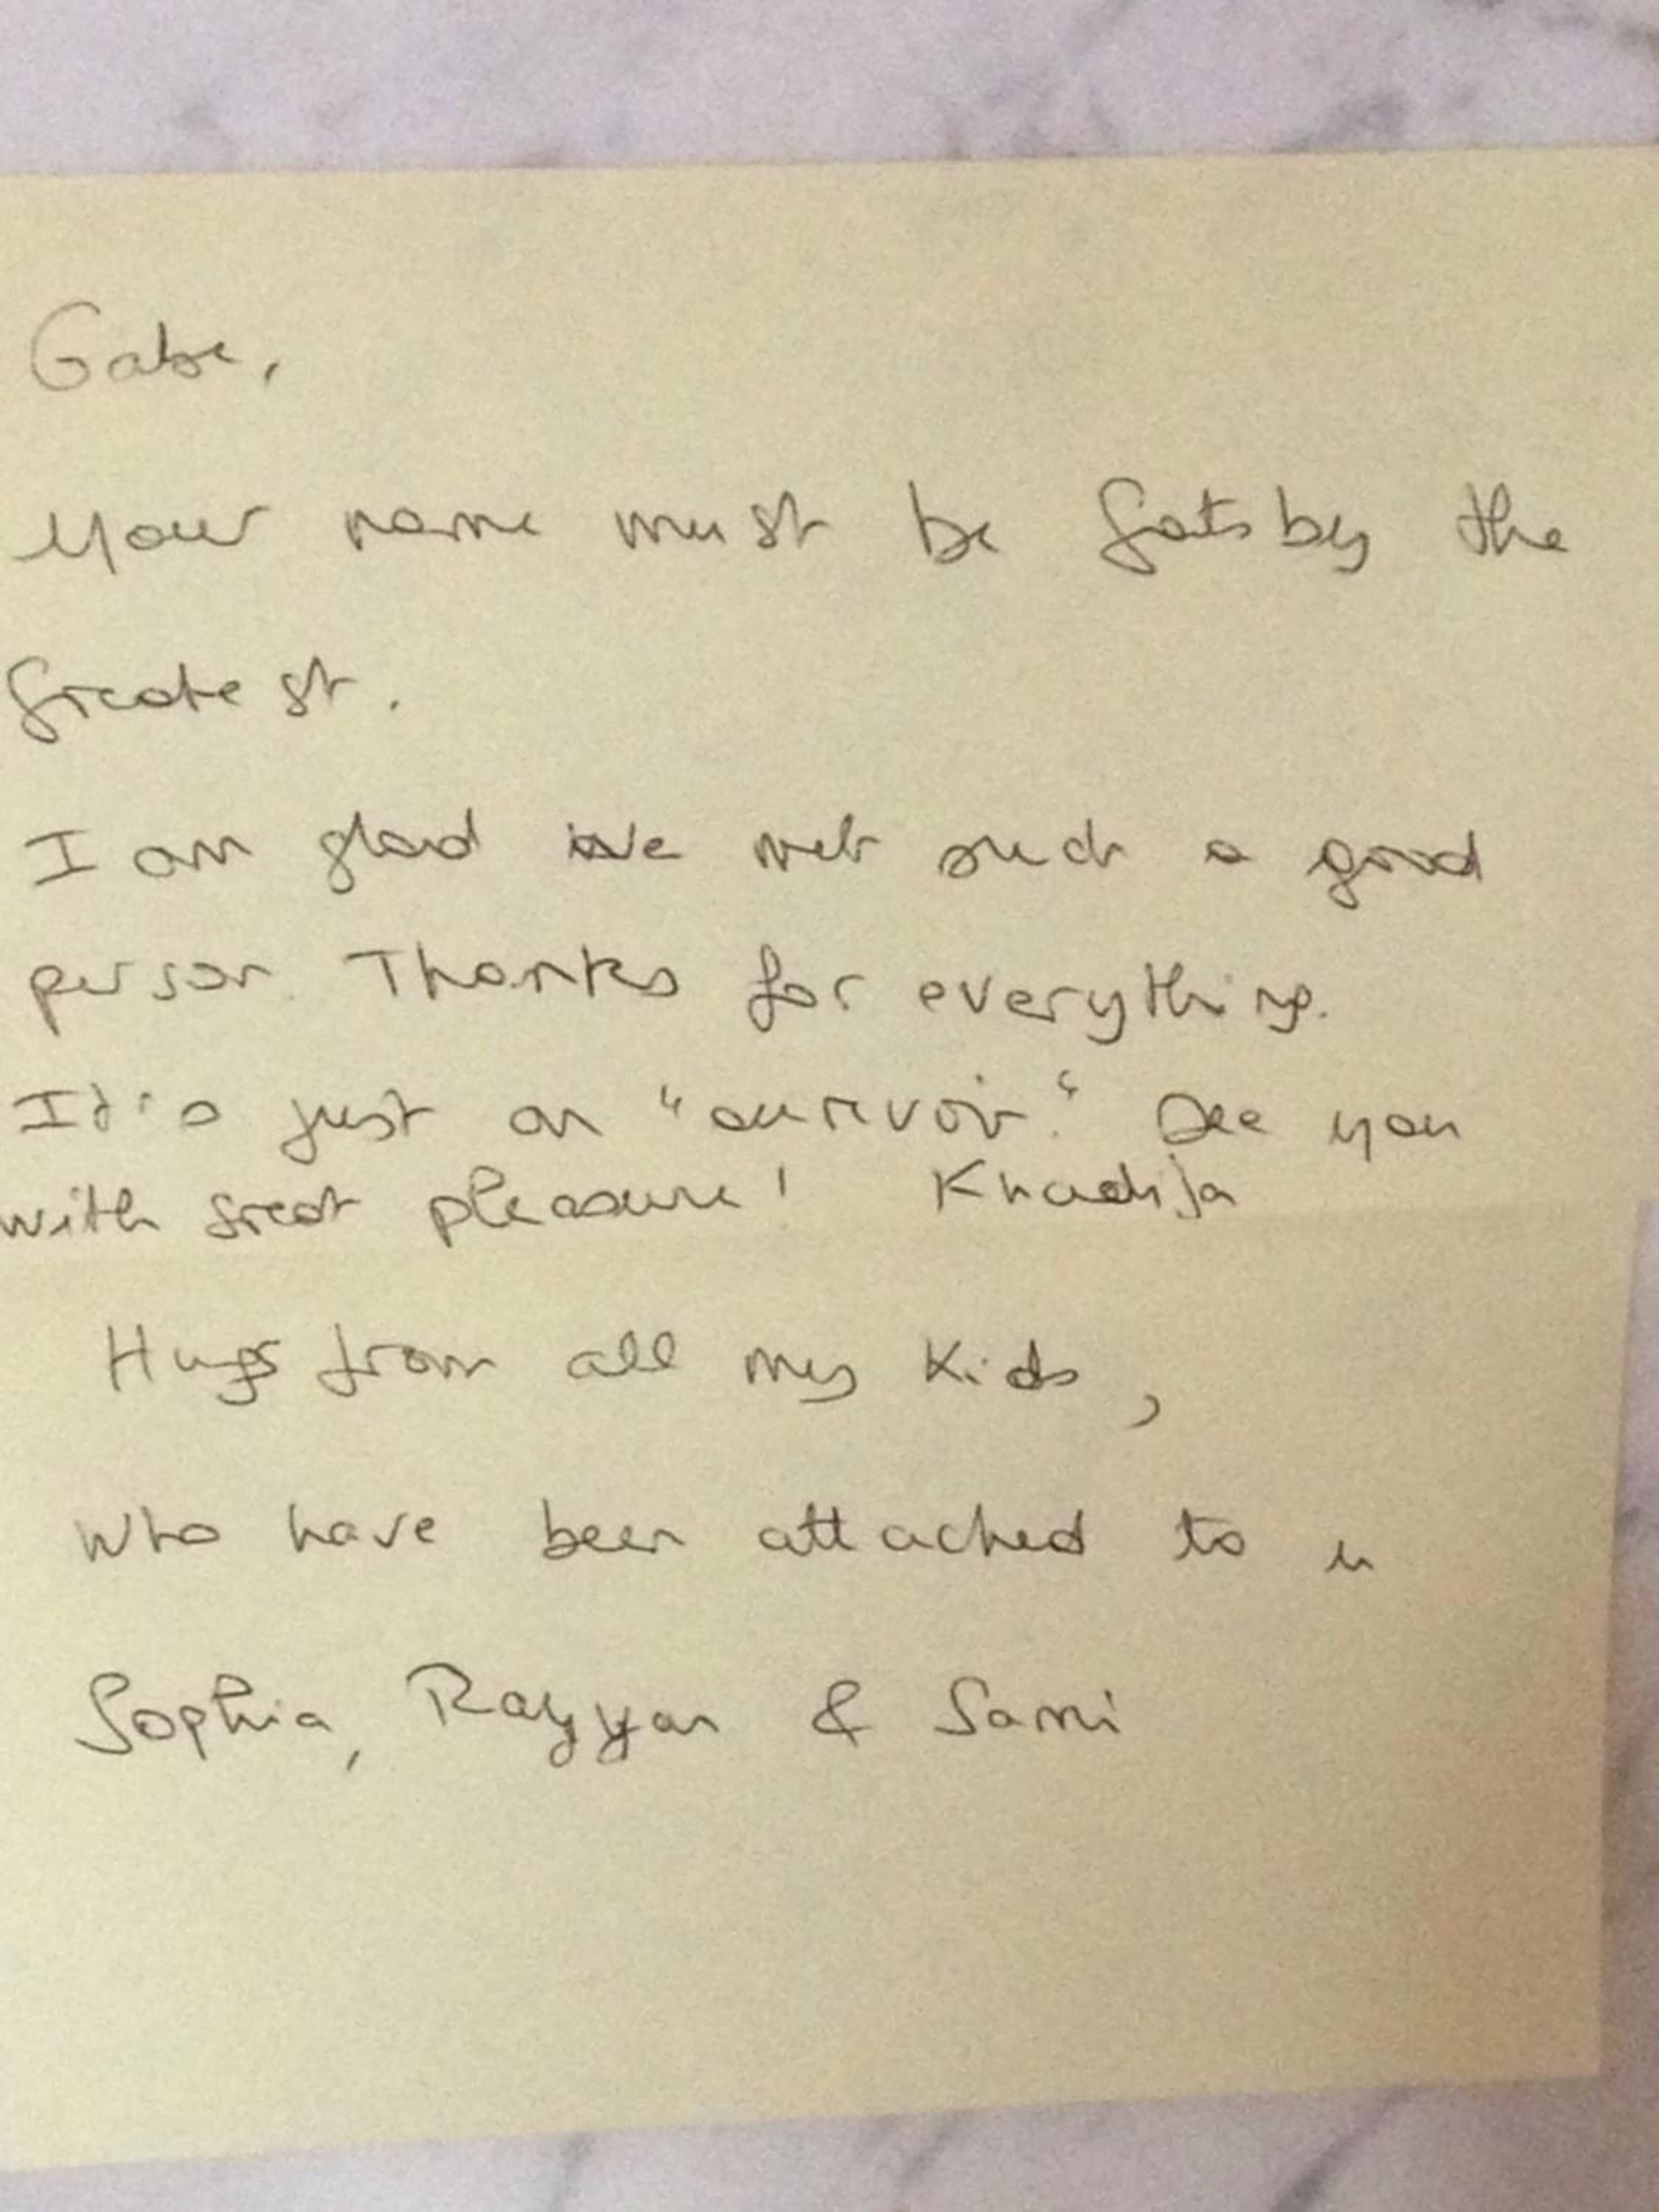 Gabe,
Your name must be Gatsby the
Greatest.
I am glad we met such a good
person. Thanks for everything.
It's just an "aurevoir." See you
with great pleasure! Khadija
Hugs from all my kids,
who have been attached to u
Sophia, Rayyan & Sami